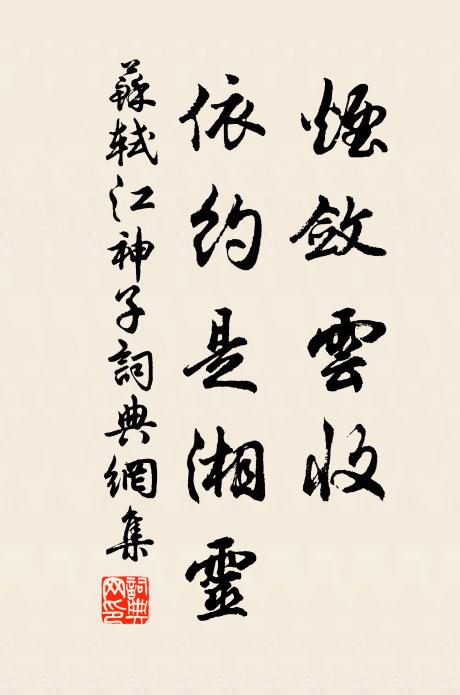 煙斂雲收
依約是湘靈
蘇軾江神子詞典網集
詞典網印